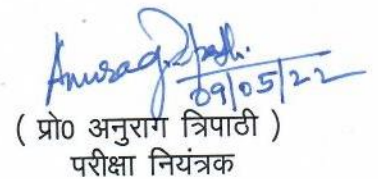 Anurag Tripathi
09/05/22
( प्रो0 अनुराग त्रिपाठी )
परीक्षा नियंत्रक